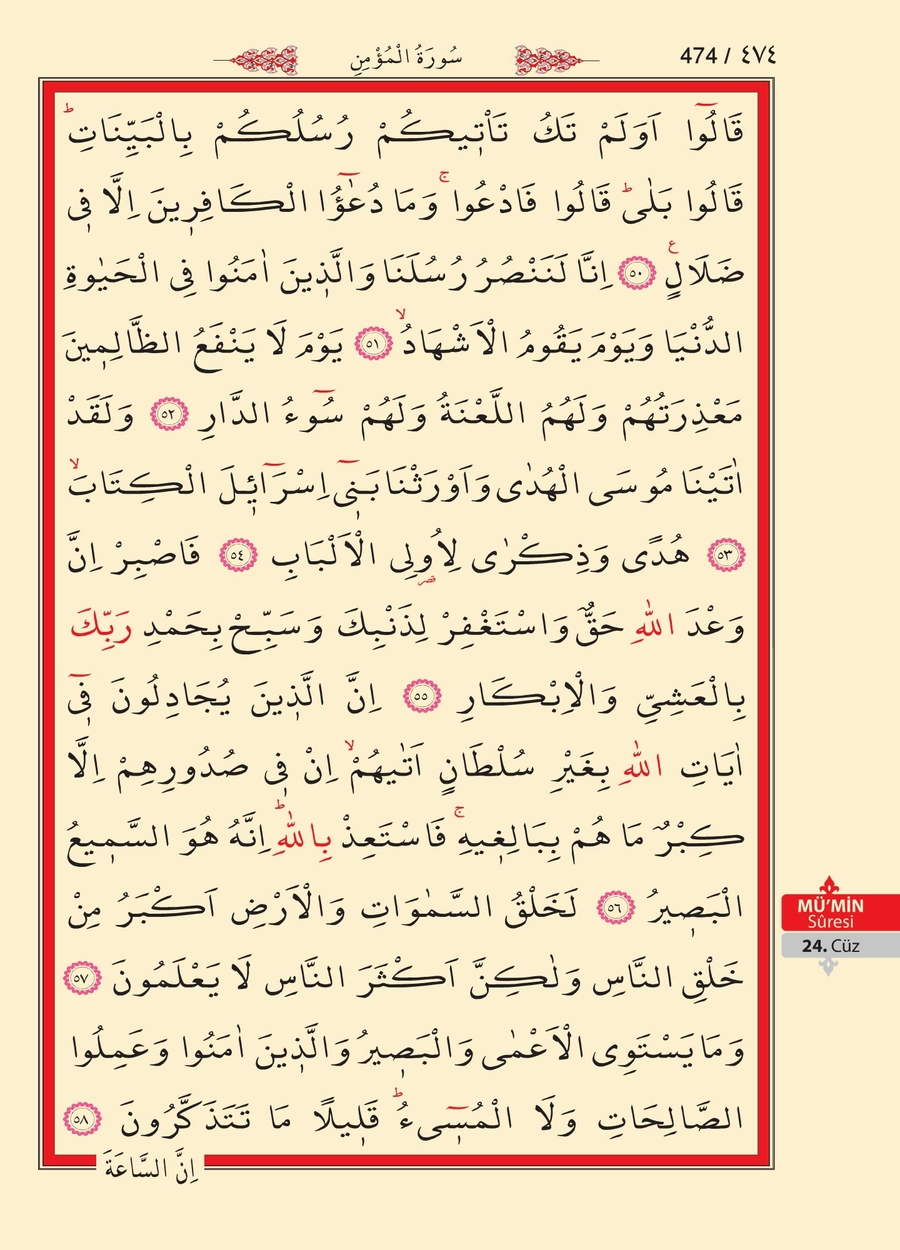 474 / ٤٧٤
سُورَةُ الْمُؤْمِنِ
قَالُٓوا اَوَلَمْ تَكُ تَأْت۪يكُمْ رُسُلُكُمْ بِالْبَيِّنَاتِۜ
قَالُوا بَلٰىۜ قَالُوا فَادْعُواۚ وَمَا دُعٰٓؤُا الْكَافِر۪ينَ اِلَّا ف۪ي
ضَلَالٍ۟ ﴿٥٠﴾ اِنَّا لَنَنْصُرُ رُسُلَنَا وَالَّذ۪ينَ اٰمَنُوا فِي الْحَيٰوةِ
الدُّنْيَا وَيَوْمَ يَقُومُ الْاَشْهَادُۙ ﴿٥١﴾ يَوْمَ لَا يَنْفَعُ الظَّالِم۪ينَ
مَعْذِرَتُهُمْ وَلَهُمُ اللَّعْنَةُ وَلَهُمْ سُٓوءُ الدَّارِ ﴿٥٢﴾ وَلَقَدْ
اٰتَيْنَا مُوسَى الْهُدٰى وَاَوْرَثْنَا بَن۪ٓي اِسْرَٓاء۪يلَ الْكِتَابَۙ
﴿٥٣﴾ هُدًى وَذِكْرٰى لِاُو۬لِي الْاَلْبَابِ ﴿٥٤﴾ فَاصْبِرْ اِنَّ
وَعْدَ اللّٰهِ حَقٌّ وَاسْتَغْفِرْ لِذَنْبِكَ وَسَبِّحْ بِحَمْدِ رَبِّكَ
بِالْعَشِيِّ وَالْاِبْكَارِ ﴿٥٥﴾ اِنَّ الَّذ۪ينَ يُجَادِلُونَ ف۪ٓي
اٰيَاتِ اللّٰهِ بِغَيْرِ سُلْطَانٍ اَتٰيهُمْۙ اِنْ ف۪ي صُدُورِهِمْ اِلَّا
كِبْرٌ مَا هُمْ بِبَالِغ۪يهِۚ فَاسْتَعِذْ بِاللّٰهِۜ اِنَّهُ هُوَ السَّم۪يعُ
الْبَص۪يرُ ﴿٥٦﴾ لَخَلْقُ السَّمٰوَاتِ وَالْاَرْضِ اَكْبَرُ مِنْ
خَلْقِ النَّاسِ وَلٰكِنَّ اَكْثَرَ النَّاسِ لَا يَعْلَمُونَ ﴿٥٧﴾
وَمَا يَسْتَوِي الْاَعْمٰى وَالْبَص۪يرُ وَالَّذ۪ينَ اٰمَنُوا وَعَمِلُوا
الصَّالِحَاتِ وَلَا الْمُس۪ٓيءُۜ قَل۪يلًا مَا تَتَذَكَّرُونَ ﴿٥٨﴾
اِنَّ السَّاعَةَ
MÜ’MİN
Sûresi
24. Cüz